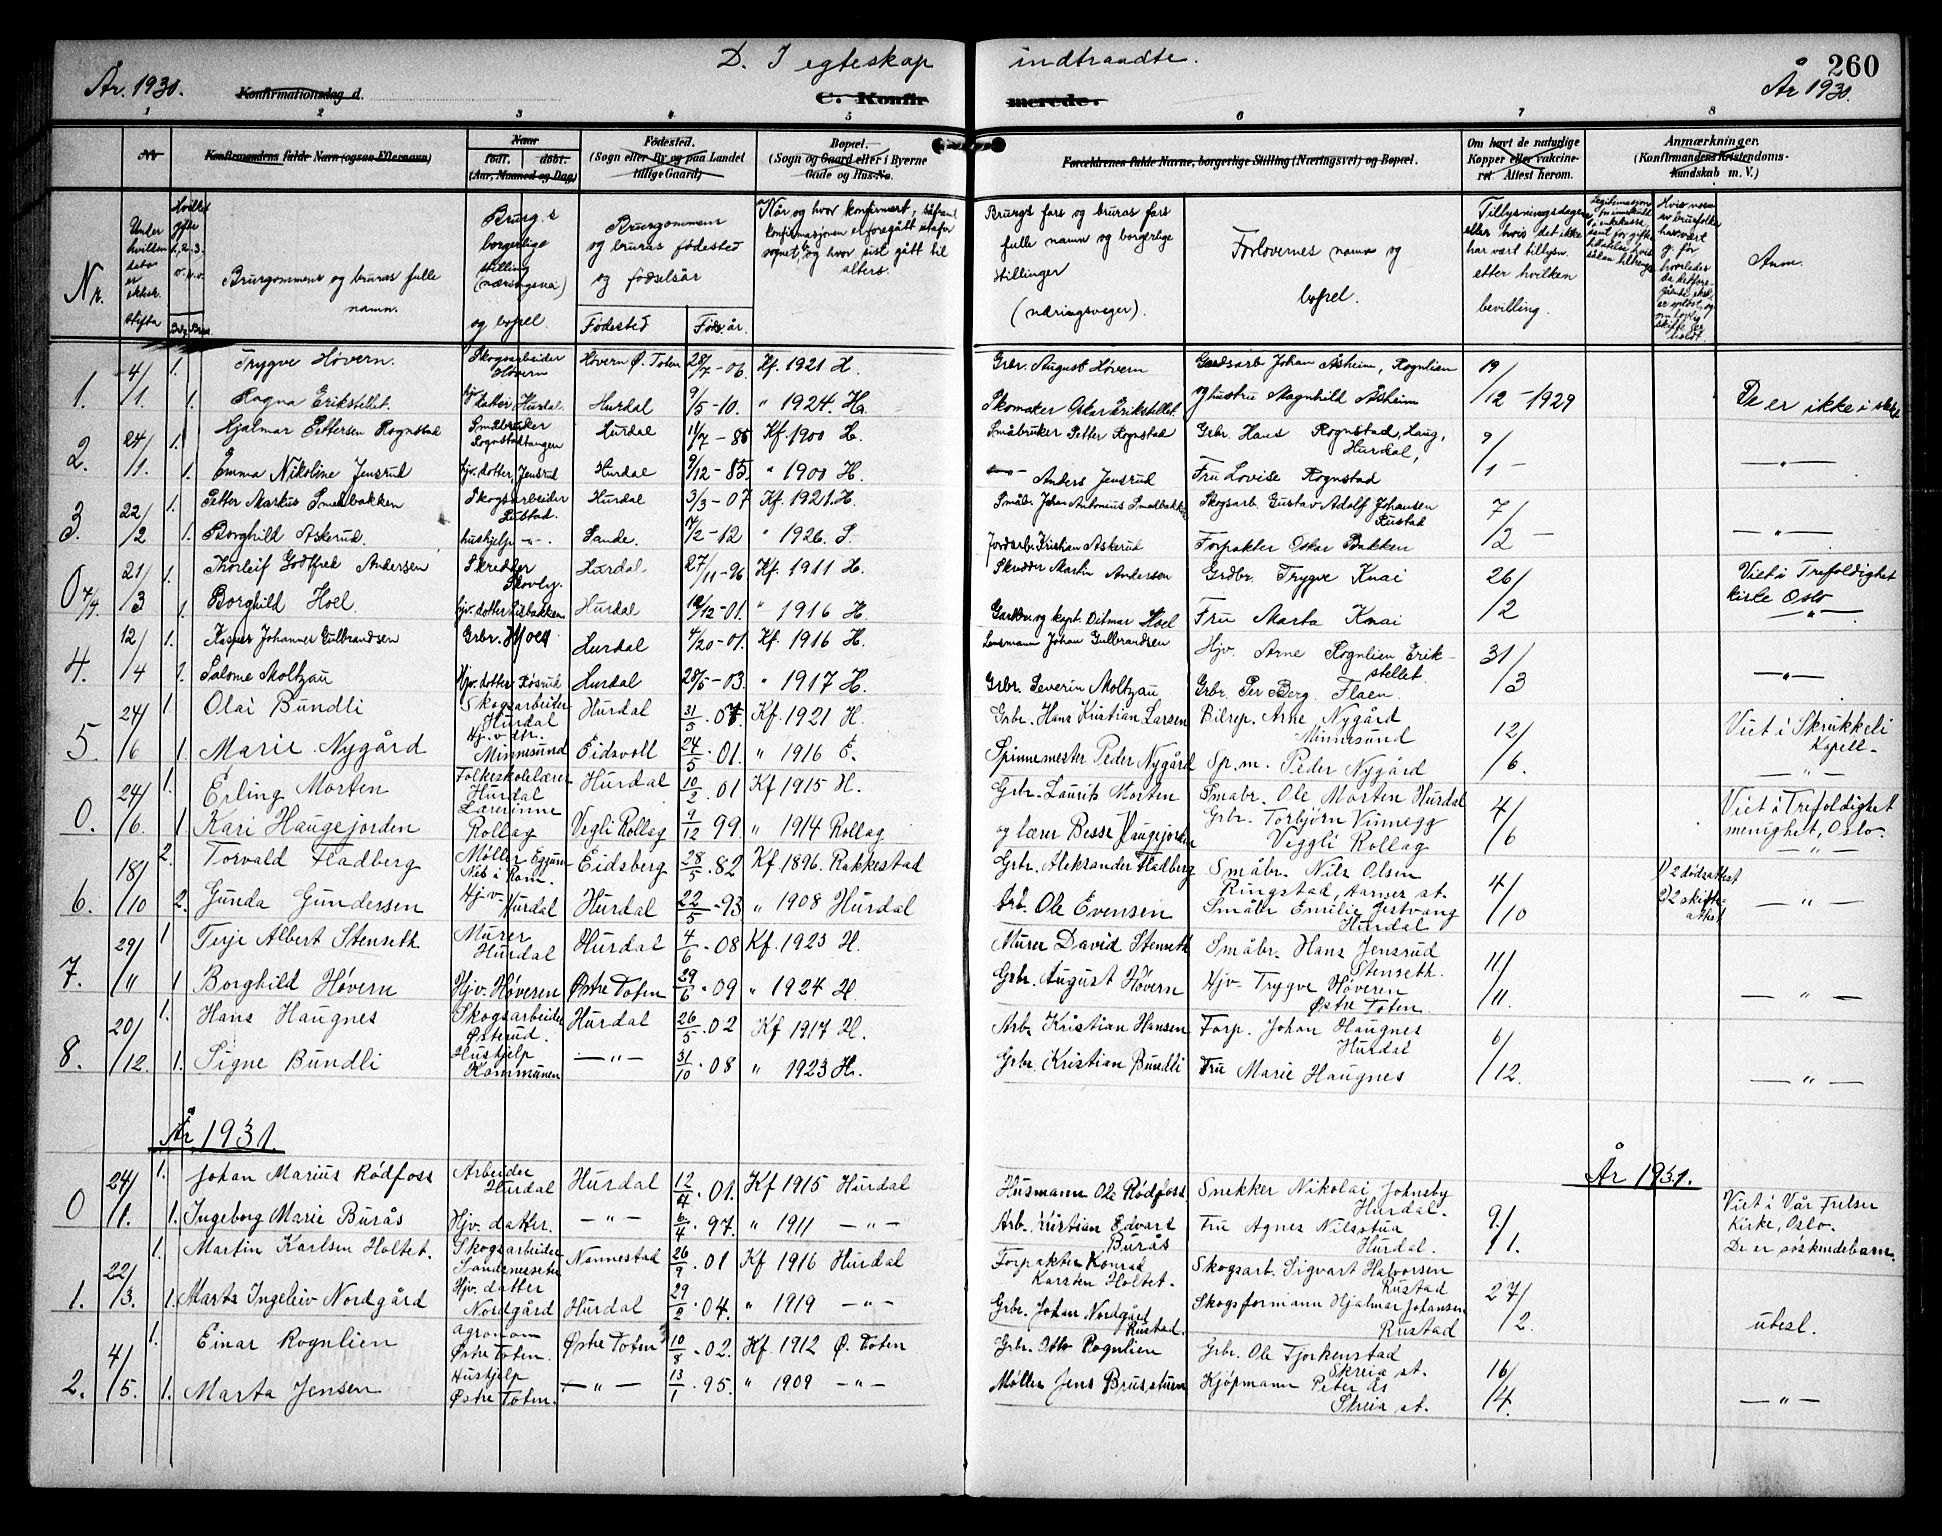 D. I egteskap indtraadte.
260
År 1930.
Konfirmationsdag d.
C. Konfirmerede.
År 1930.
1 2 3 4 5 6 7 8
Nr.
Konfirmandens fulde Navn (ogsaa Efternavn)
Naar
født. døbt.
(Aar, Maaned og Dag)
Fødested.
(Sogn eller By og paa Landet
tillige Gaard)
Bopæl.
(Sogn og Gaard eller i Byerne
Gade og Hus-No.
Forældrenes fulde Navne, borgerlige Stilling (Næringsvei) og Bopæl.
Om havt de naturlige
Kopper eller vakcine-
ret. Attest herom.
Anmærkninger.
(Konfirmandens Kristendoms-
kundskab m. V.)
Nr.
Under hvilken dato er ektsk. stifta
Brurgommens og bruras fulle
namn.
Brurg.s
borgerlige
stilling
(næringsvei)
og bopel.
Brurgommens
og bruras fødested
og fødselsår
Fødested Føds.år.
Når og hvor konfirmert, såframt
konfirmasjonen er foregått utafor
sognet, og hvor sist gått til
alters.
Brurgs fars og bruras fars
fulle namn og borgerlige
stillinger
(næringsveger).
Forlovernes namn og
bopel.
Tillysningsdagen
eller hvis det ikke
har vært tillysn.
etter hvilken
bevilling.
Anm.
1. 4/1. 1. Trygve Høvern. Skogsarbeider Høvern Høvern Ø. Toten 28/7-06. Kf. 1921 H. Grbr. August Høvern Gardsarb Johan Åsheim, Rognlien 19/12-1929
1. Ragna Erikstellet. hjv datter Hurdal. Hurdal 9/5-10. " 1924. H. Skomaker Oskar Erikstellet. og hustru Magnhild Åsheim De er ikke i slekt
2. 24/1. 1. Hjalmar Pettersen Rognstad Småbruker Rognstadtangen Hurdal 11/7-85 Kf. 1900 H. Småbruker Petter Rognstad Grbr. Hans Rognstad, Haug, Hurdal, 9/1-
1. Emma Nikoline Jensrud hjv. dotter, Jensrud Hurdal 9/12-85. " 1900 H. —"— Anders Jensrud Fru Lovise Rognstad —"—
3. 22/2 1. Petter Markus Smedbakken Skogsarbeider Hurdal 3/3-07 Kf. 1921. H. Småb. Johan Antonius Smedbakken Skogsarb. Gustav Adolf Johansen Rustad 7/2-
1. Borghild Askerud. hushjelp -"-. Sande. 17/2-12 " 1926. S. Jordarb. Kristian Askerud Forpakter Oskar Bakken —"—
0 7/4 21/3 1. Thorleif Godtfred Andersen Skredder Skovly. Hurdal 27/11-96 Kf. 1911 H. Skredder Martin Andersen Grdbr. Trygve Knai 26/2 Viet i Trefoldighet kirke Oslo
1. Borghild Hoel. hjv. dotter Lisbakken Hurdal 10/12-01. " 1916 H. Gardbr. og kapt. Ditmar Hoel Fru Marta Knai "
4. 12/4 1. Kasper Johannes Gulbrandsen Grbr. Hurdal 4/20-01. Kf. 1916 H. Lensmann Johan Gulbrandsen Hjv. Arne Rognlien Erikstellet. 31/3
1. Salome Moltzau Hjv. dotter Røsrud Hurdal 28/5-03. " 1917 H. Grbr. Severin Moltzau Grbr. Per Berg. Flaen. —"—
5. 24/6 1. Olai Bundli Skogsarbeider Hurdal Hurdal 31/5.07. Kf. 1921 H. Grbr. Hans Kristian Larsen Bilrep. Arne Nygård Minnesund 12/6. Viet i Skrukkeli Kapell-
1. Marie Nygård Hj. v. dtr. Minnesund Eidsvoll 24/5.01. " 1916 E. Spinnemester Peder Nygård Sp.m. Peder Nygård —"—
0. 24/6. 1. Erling Morten Folkeskolelærer Hurdal Hurdal 10/2.01 Kf 1915 H. Grbr. Laurits Morten Småbr. Ole Morten Hurdal 4/6 Viet i Trefoldighet menighet, Oslo-
1 Kari Haugejorden Lærerinne Rollag Vegli Rollag 9/12 99 " 1914 Rollag og lærer Besse Haugejorden Grbr. Torbjørn Vinnegg Veggli Rollag —"—
6. 18/10 2. Torvald Fladberg Møller Eidsberg 28/5.82 Kf 1896. Rakkestad Grbr. Aleksander Fladberg Småbr. Nils Olsen Ringstad, Aarnes st. 4/10 2 dødsattest
2. Gunda Gundersen Hjv. Hurdal Hurdal 22/5-93 " 1908 Hurdal Arb. Ole Evensen Småbr Emilie Gjestvang Hurdal 2 skifteattest —"—
7. 29/11 1 Terje Albert Stenseth Murer Hurdal Hurdal 4/6-08 Kf. 1923 H. Murer David Stenseth Småbr. Hans Jensrud Stenseth. 11/11.
1 Borghild Høvern Hjv. Høveren Østre Toten 29/6-09 " 1924 H. Grbr. August Høvern Hjv. Trygve Høveren Østre Toten. —"—
8. 20/12. 1. Hans Haugnes Skogsarbeider Østerud. Hurdal 26/5.02 Kf 1917 H. Arb. Kristian Hansen Forp. Johan Haugnes Hurdal 6/12.
1. Signe Bundli Hushjelp Kommunen —"— 31/10.08 " 1923 H. Grbr. Kristian Bundli Fru Marie Haugnes —"—
År 1931. År 1931.
0 24/1. 1. Johan Marius Rødfoss Arbeider Hurdal Hurdal 12/4.01. Kf 1915 Hurdal Husmann Ole Rødfoss Snekker Nikolai Johnsby Hurdal. 9/1. Viet i Vår Frelser Kirke, Oslo-
1. Ingeborg Marie Burås Hjv. datter. —"— 6/4.97. " 1911 —"— Arb. Kristian Edvart Burås Fru Agnes Nilsstua Hurdal. De er søskendebarn.
1. 22/3. 1. Martin Karlsen Holtet. Skogsarbeider Nannestad 26/9.01 Kf 1916 Hurdal Forpakter Konrad Karsten Holtet. Skogsarb. Sigvart Halvorsen Rustad 27/2.
1. Marta Ingeleiv Nordgård Hjv. datter Nordgård Hurdal 29/2.04. " 1919 —"— Grbr. Johan Nordgård Rustad. Skogsformann Hjalmar Johansen Rustad ubesl.
2. 4/5. 1. Einar Rognlien agronom Østre Toten. Østre Toten 10/8.02. Kf 1912 Ø. Toten Grbr. Otto Rognlien Grbr. Ole Fjorkenstad Skreia st. 16/4.
1. Marta Jensen Hushjelp Østre Toten. —"— 13/1.95. " 1909 —"— Møller Jens Brusstuen Kjøpmann Peter Ås Skreia st. —"—